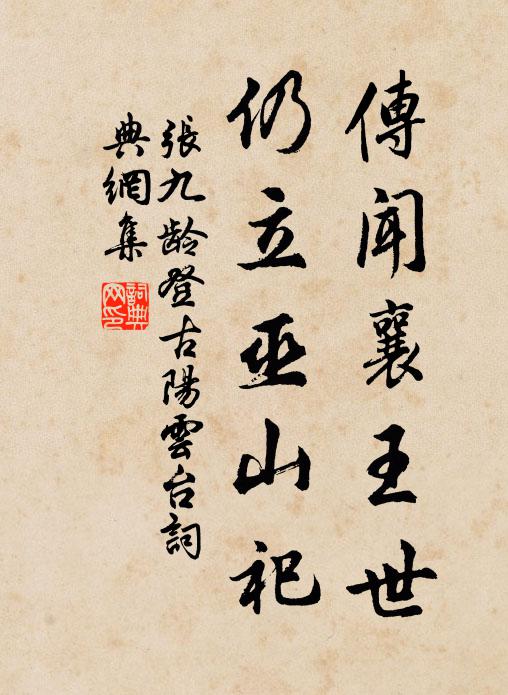 傳聞襄王世
仍立巫山祀
張九龄登古陽雲台詞
典網集
詞典網印